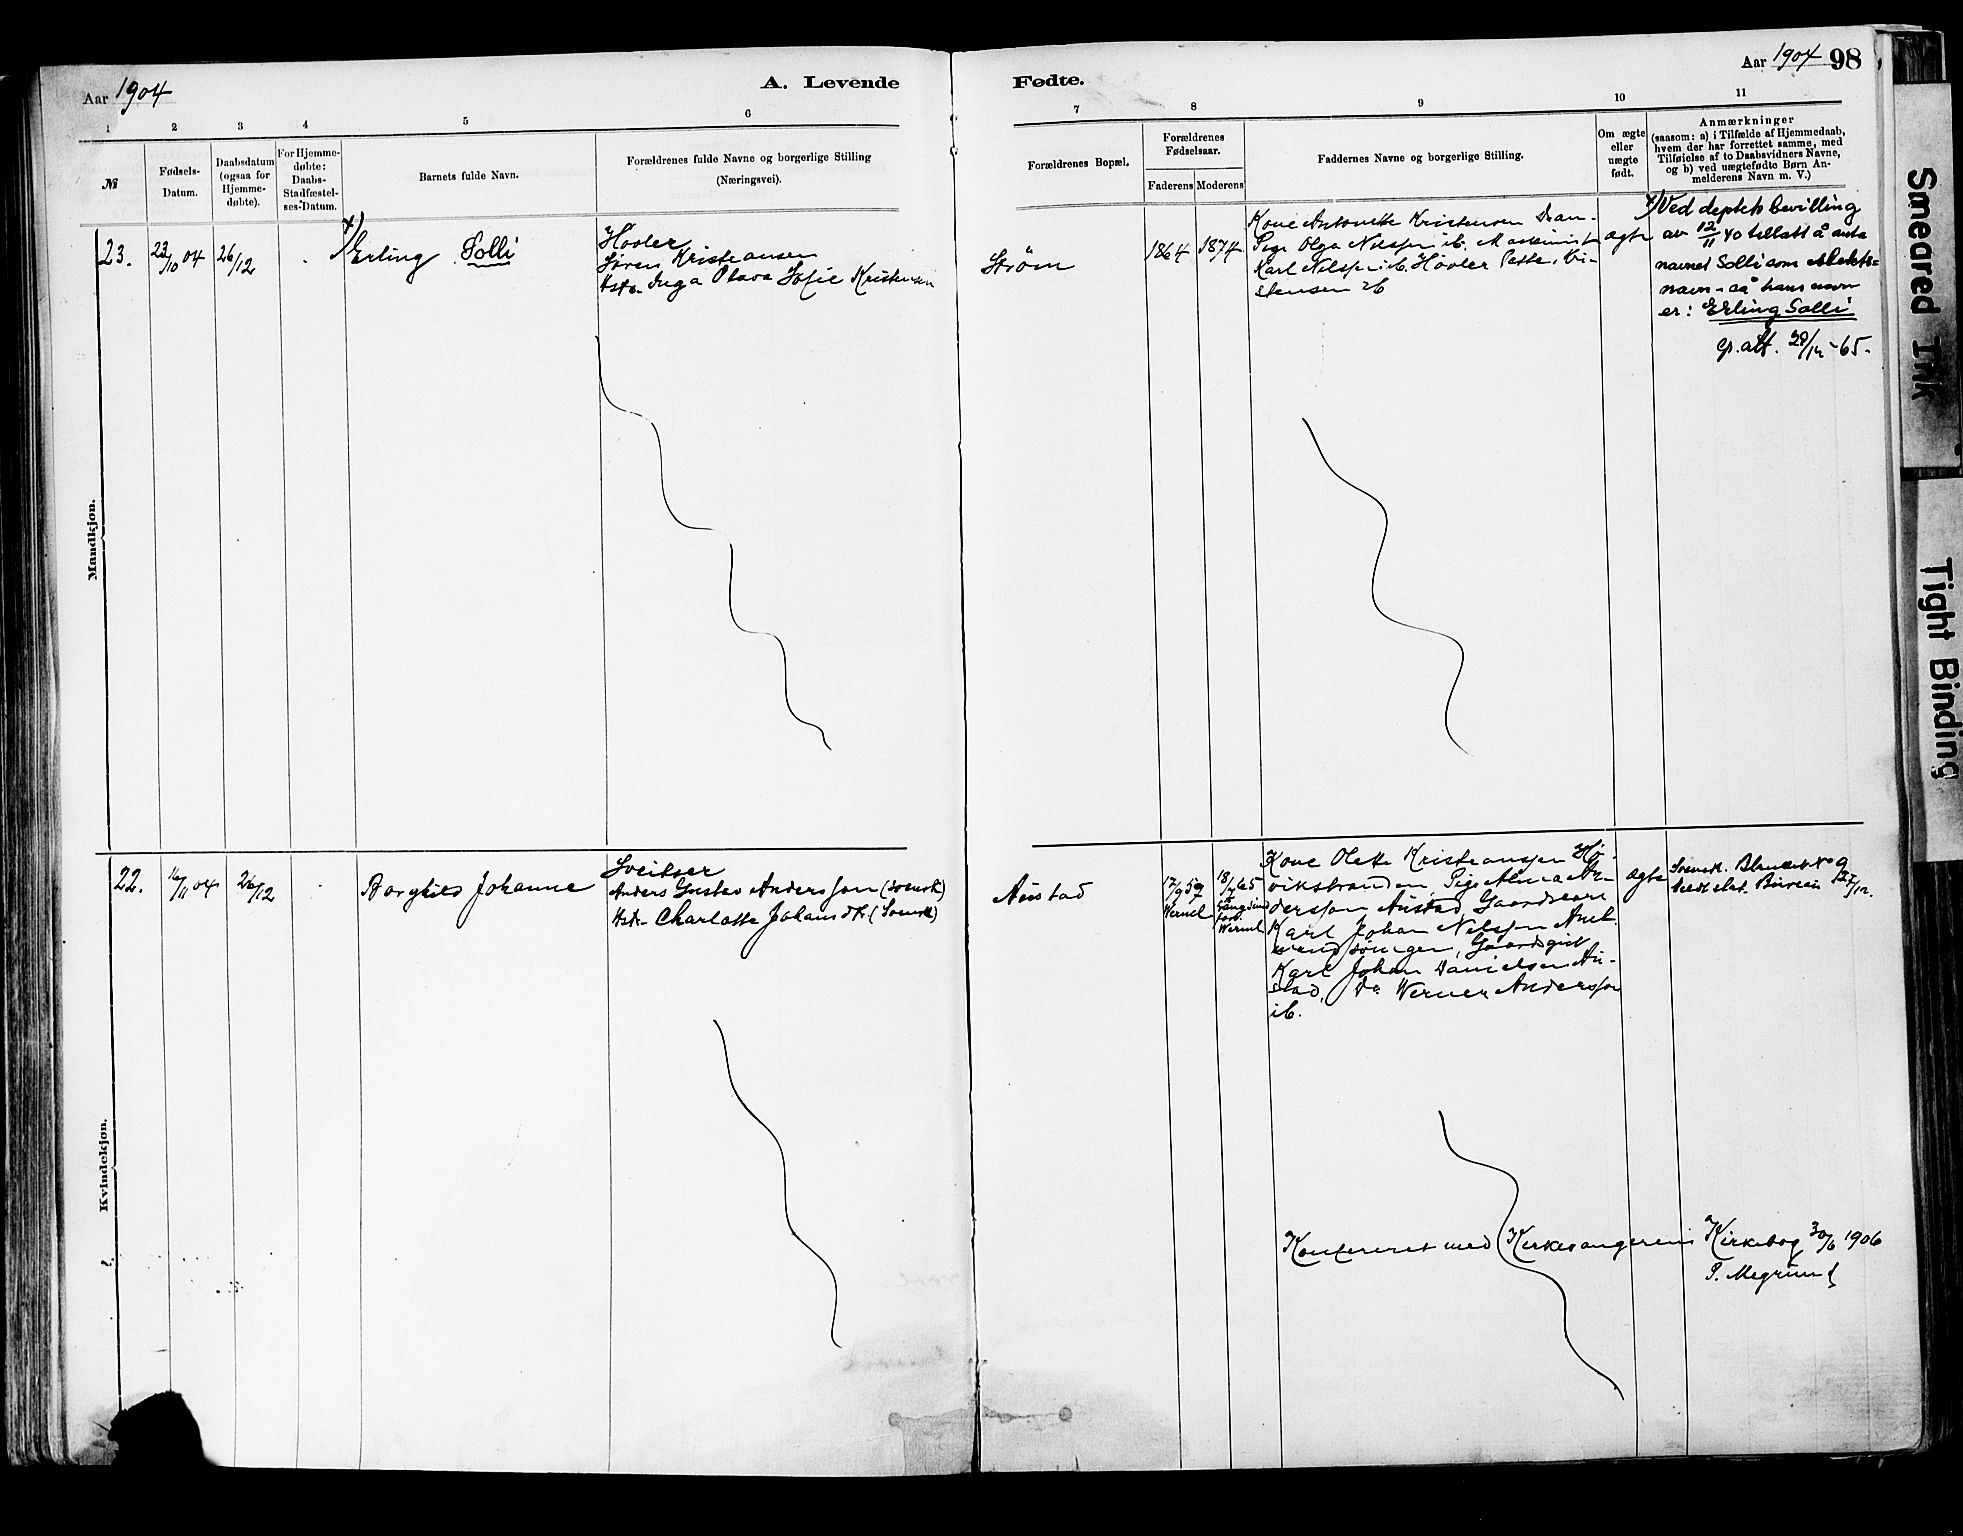 Aar 1904
A. Levende
1
2
3
4
5
6
№
Fødsels-
Datum.
Daabsdatum
(ogsaa for
Hjemme-
døbte).
For Hjemme-
døbte:
Daabs-
Stadfæstel-
ses-Datum.
Barnets fulde Navn.
Forældrenes fulde Navne og borgerlige Stilling
(Næringsvei).
Mandkjøn.
23.
23/10 04
26/12
x)
Erling Solli
Høvler
Søren Kristiansen
Hstr. Inga Olava Sofie Kristensen
Kvindekjøn.
22.
16/11 04
26/12
Borghild Johanne
Sveitser
Anders Gustav Andersson (svensk)
Hstr. Charlotte Johansdtr (Svensk)
Fødte.
Aar 1904 98
7
8
9
10
11
Forældrenes Bopæl.
Forældrenes
Fødselsaar.
Faderens
Moderens
Faddernes Navne og borgerlige Stilling.
Om ægte
eller
uægte
født.
Anmærkninger
(saasom: a) i Tilfælde af Hjemmedaab,
hvem der har forrettet samme, med
Tilføielse af to Daabsvidners Navne,
og b) ved uægtefødte Børn An-
melderens Navn m. V.)
Strøm
1864
1874
Kone Antonette Kristensen
Pige Olga Nilssen ib. Maskinist
Karl Nilssen ib. Høvler
ib
ægte
x) Ved deptets bevilling
av 12/11 40 tillatt å anta
navnet Solli som slekts-
navn - så hans navn
er: Erling Solli
28/12 -65.
Austad
17/9 59
Werml.
18/7 65
Werml.
Kone Olette Kristianssen Hø-
vikstranden, Pige Alma An-
dersson Austad, Gaardseier
Karl Johan Nilssen
Gaardsgut
Karl Johan Danielsen Au-
stad, Do Werner Andersson
ib.
ægte
Svensk. Blanket No 9
Bureau 27/12.
Konfereret med Kirkesangerens Kirkebog 30/6 1906
Smeared Ink
Tight Binding